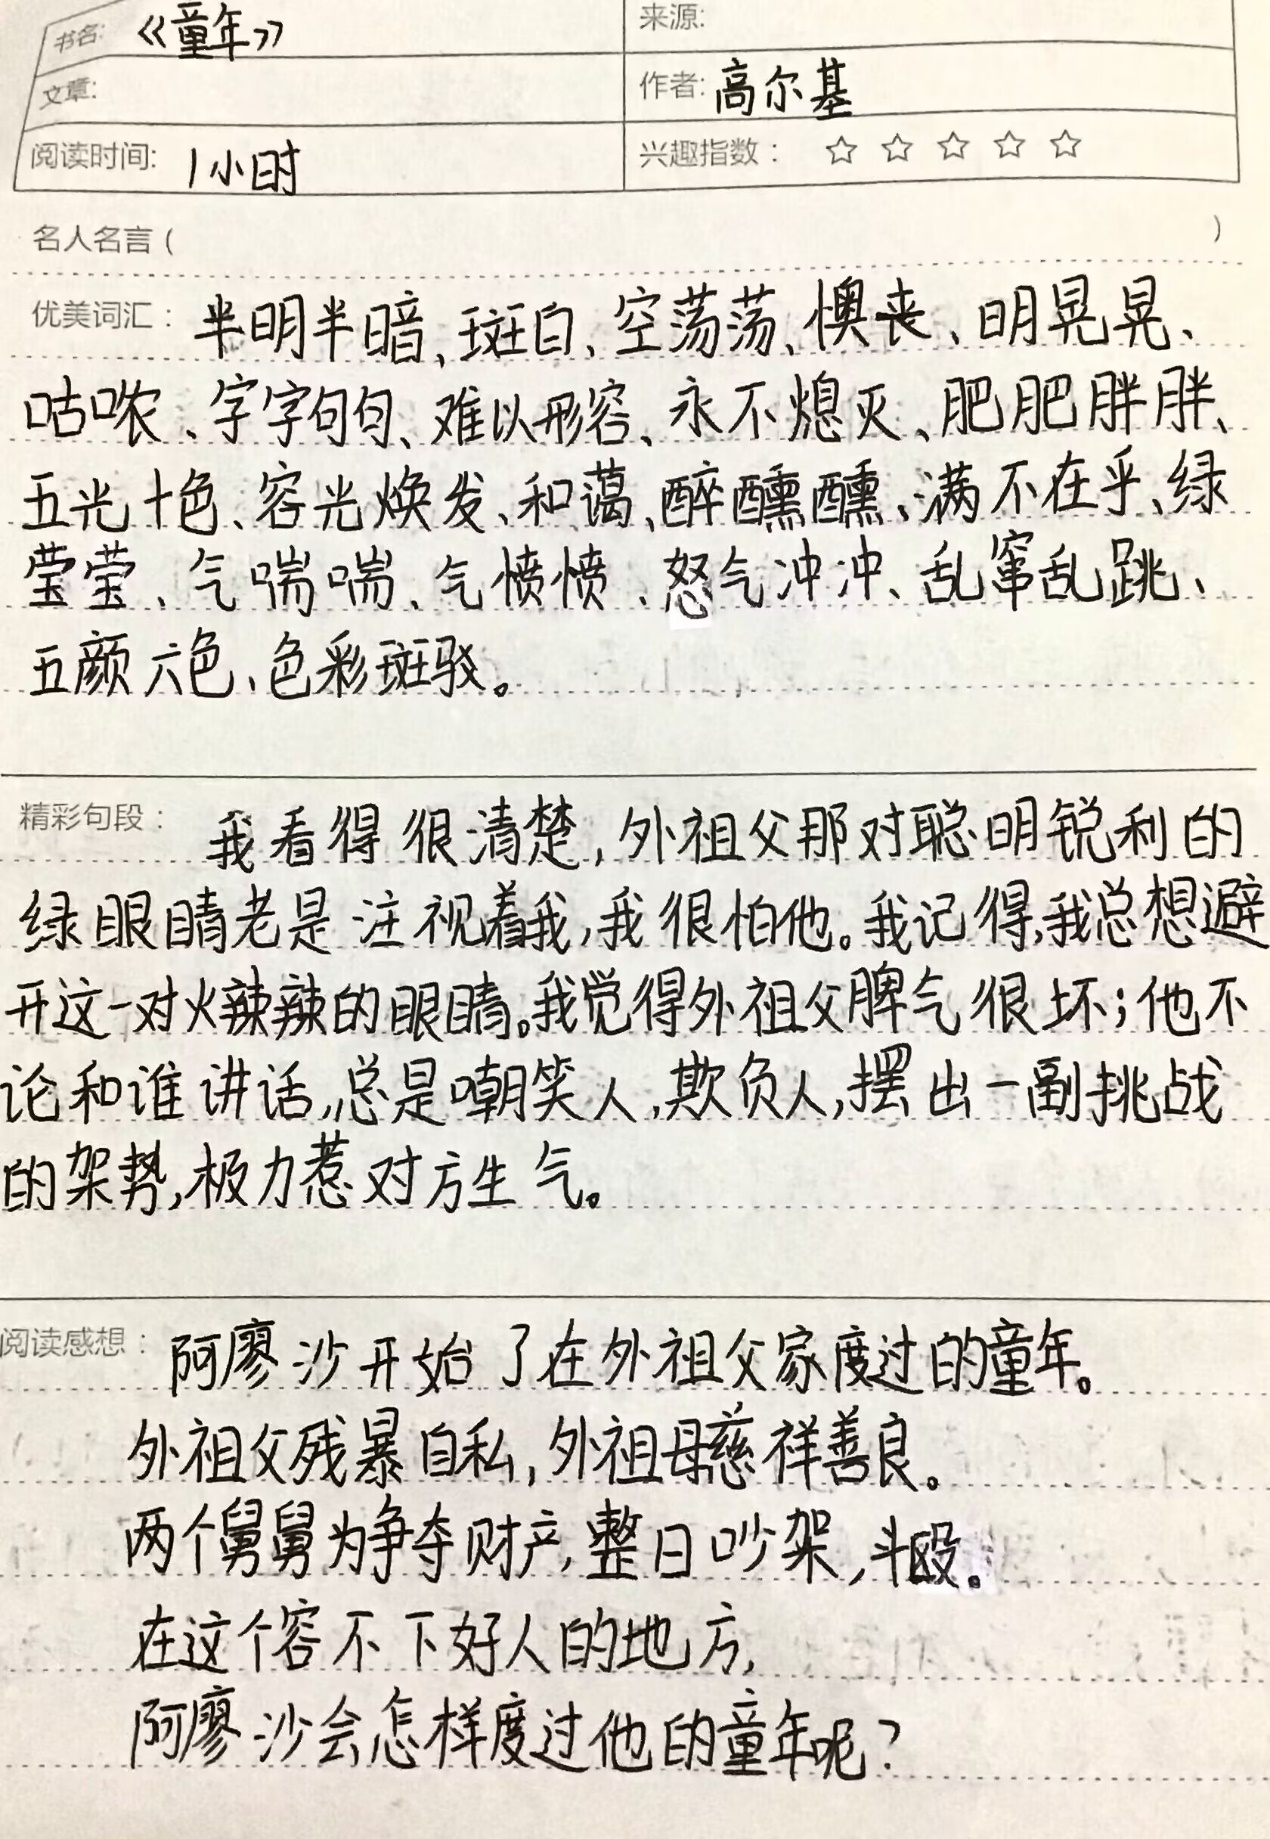 书名: 《童年》 来源:
文章: 作者: 高尔基
阅读时间: 1小时 兴趣指数: ☆ ☆ ☆ ☆ ☆
名人名言 ( )
优美词汇: 半明半暗、斑白、空荡荡、懊丧、明晃晃、
咕哝、字字句句、难以形容、永不熄灭、肥肥胖胖、
五光十色、容光焕发、和蔼、醉醺醺、满不在乎、绿
莹莹、气喘喘、气愤愤、怒气冲冲、乱窜乱跳、
五颜六色、色彩斑驳。
精彩句段: 我看得很清楚,外祖父那对聪明锐利的
绿眼睛老是注视着我,我很怕他。我记得,我总想避
开这一对火辣辣的眼睛。我觉得外祖父脾气很坏;他不
论和谁讲话,总是嘲笑人,欺负人,摆出一副挑战
的架势,极力惹对方生气。
阅读感想: 阿廖沙开始了在外祖父家度过的童年。
外祖父残暴自私,外祖母慈祥善良。
两个舅舅为争夺财产,整日吵架,斗殴。
在这个容不下好人的地方,
阿廖沙会怎样度过他的童年呢?